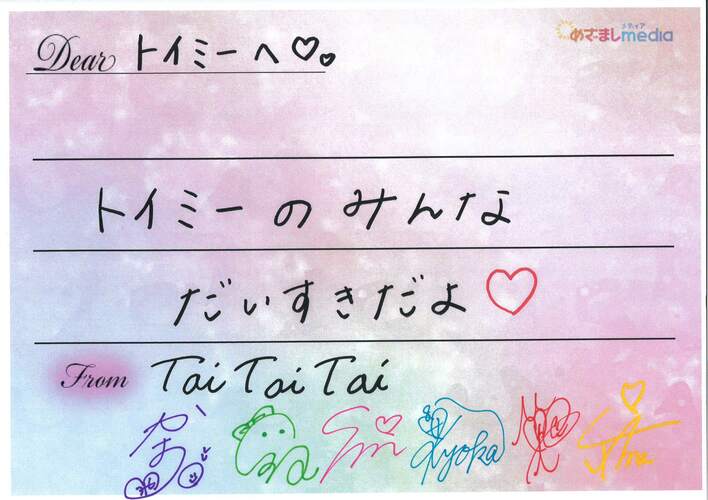 Dear トイミーへ♡♡
めざましmedia
メディア
トイミーのみんな
だいすきだよ♡
From Tai Tai Tai
Kyoka